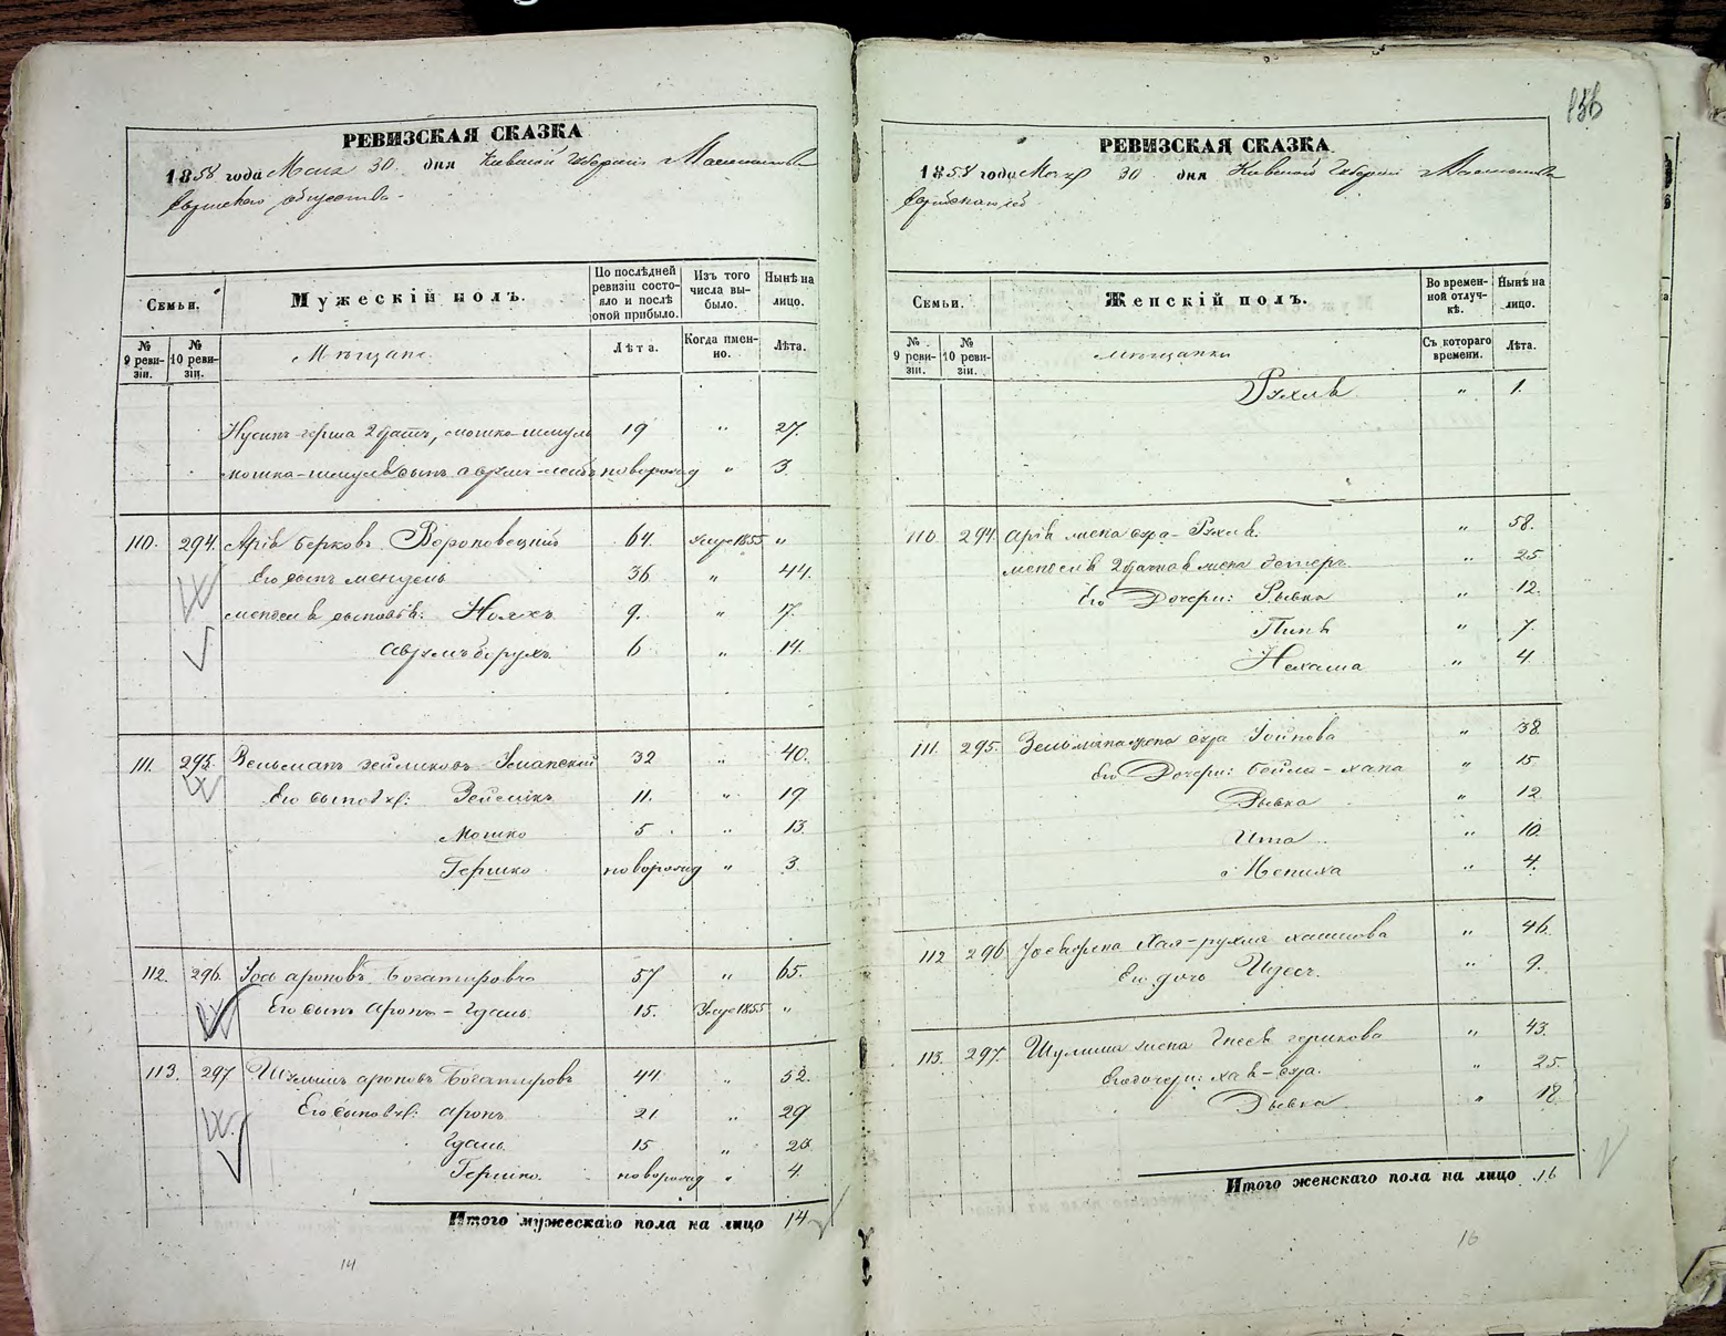 156
РЕВИЗСКАЯ СКАЗКА
1858 года Маия 30 дня Киевской Губернии
Еврейского общества
Семьи.
Мужескій полъ.
По послѣдней ревизіи состояло и послѣ оной прибыло.
Изъ того числа выбыло.
Нынѣ на лицо.
№ 9 ревизіи.
№ 10 ревизіи.
Мѣщане.
Лѣта.
Когда именно.
Лѣта.
Нусинъ-герша 2 братъ, мошко-шмуль 19 " 27.
мошка-шмуля сынъ аврумъ-лейбъ новорожд " 3
110. 294. Арія Берковъ 64. Умре 1855 "
Его сынъ мендель 36 " 44.
менделя сыновья: 9. " 17.
аврумъ борухъ. 6 " 14.
111. 295. Зельманъ Зейликовъ Уманскій 32 " 40.
Его сыновья: Зейликъ 11. " 19
Мошко 5 " 13.
Гершко новорожд " 3.
112. 296. Іось ароновъ 57 " 65.
Его сынъ аронъ-Гдаль 15. Умре 1855 "
113. 297 Шулимъ ароновъ Богатыровъ 44. " 52.
Его сыновья: аронъ 21 " 29
Гдаль 15 "
Гершко. новорожд " 4.
Итого мужескаго пола на лицо 14
14
РЕВИЗСКАЯ СКАЗКА
1858 года Маия 30 дня Киевской Губерніи
Семьи.
Женскій полъ.
Во временной отлучкѣ.
Нынѣ на лицо.
№ 9 ревизіи.
№ 10 ревизіи.
мѣщанки
Съ котораго времени.
Лѣта.
Рухля " 1.
110 294. Арія жена сура-Рухля. " 58.
менделя 2 брачная жена " 25
Его Дочери: Рывка " 12.
" 7.
Нехама " 4
111. 295. Зельмана жена сура " 38.
Его Дочери: бейла-хана " 15
Рывка " 12
Ита " 10.
" 4.
112 296 Іося жена Хая-рухля " 46.
Его дочь Идесь. " 9.
113. 297. Шулима жена Гнеся гершкова " 43.
Его дочери: хая-сура. " 25.
Рывка " 18
Итого женскаго пола на лицо 16
16